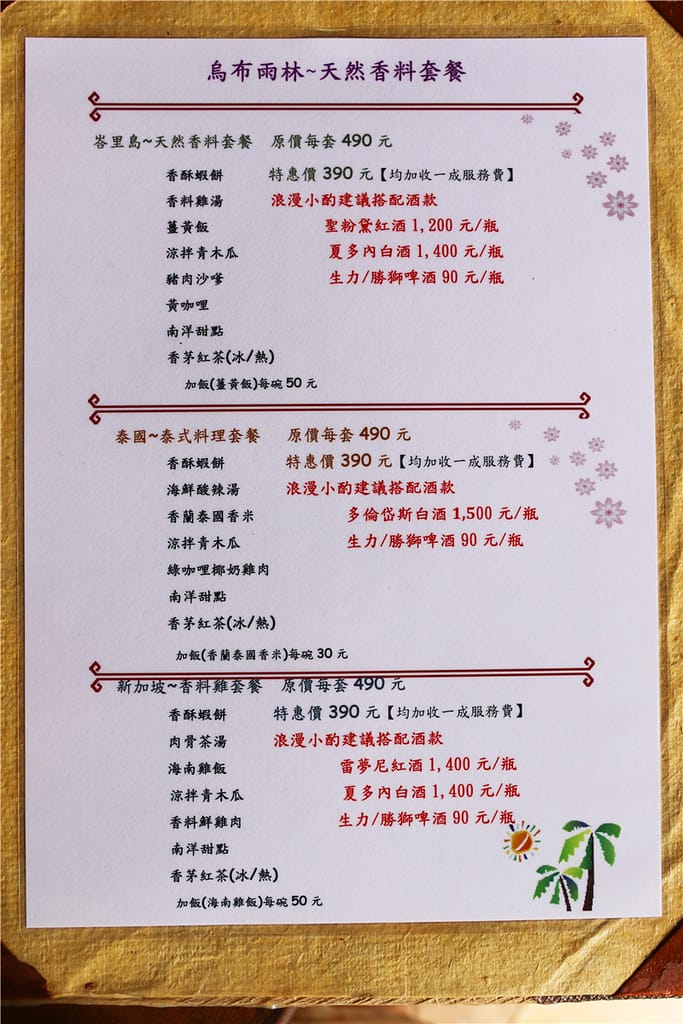 烏布雨林~天然香料套餐
峇里島~天然香料套餐 原價每套 490 元
香酥蝦餅 特惠價 390 元【均加收一成服務費】
香料雞湯 浪漫小酌建議搭配酒款
薑黃飯 聖粉黛紅酒 1,200 元/瓶
涼拌青木瓜 夏多內白酒 1,400 元/瓶
豬肉沙嗲 生力/勝獅啤酒 90 元/瓶
黃咖哩
南洋甜點
香茅紅茶(冰/熱)
加飯(薑黃飯)每碗 50 元
泰國~泰式料理套餐 原價每套 490 元
香酥蝦餅 特惠價 390 元【均加收一成服務費】
海鮮酸辣湯 浪漫小酌建議搭配酒款
香蘭泰國香米 多倫岱斯白酒 1,500 元/瓶
涼拌青木瓜 生力/勝獅啤酒 90 元/瓶
綠咖哩椰奶雞肉
南洋甜點
香茅紅茶(冰/熱)
加飯(香蘭泰國香米)每碗 30 元
新加坡~香料雞套餐 原價每套 490 元
香酥蝦餅 特惠價 390 元【均加收一成服務費】
肉骨茶湯 浪漫小酌建議搭配酒款
海南雞飯 雷夢尼紅酒 1,400 元/瓶
涼拌青木瓜 夏多內白酒 1,400 元/瓶
香料鮮雞肉 生力/勝獅啤酒 90 元/瓶
南洋甜點
香茅紅茶(冰/熱)
加飯(海南雞飯)每碗 50 元